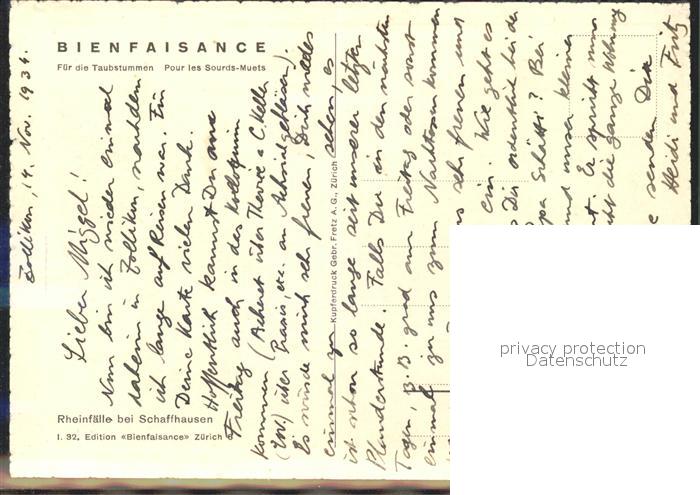 BIENFAISANCE
Für die Taubstummen Pour les Sourds-Muets
Zollikon, 14. Nov. 1934.
Lieber Miggel!
Nun bin ich wieder einmal
daheim in Zollikon, nachdem
ich lange auf Reisen war. Für
Deine Karte vielen Dank.
Hoffentlich kannst Du am
Freitag auch in das Kolloquium
kommen (Ackeret über Theorie & C. Keller
über Praxis, etc. an
Es würde mich sehr freuen, Dich wieder
einmal zu sehen, es
ist schon so lange seit unserer letzten
Plauderstunde. Falls Du in den nächsten
Tagen, z.B. grad am Freitag oder sonst
einmal zu uns zum Nachtessen kommen
sehr freuen und
ein. Wie geht es
Dir ordentlich bei der
Bei
und unser kleiner
Er spricht nun
die ganze Wohnung
senden Dir
Heidi und Fritz
Kupferdruck Gebr. Fretz A. G., Zürich
Rheinfälle bei Schaffhausen
I. 32, Edition «Bienfaisance» Zürich 6
privacy protection
Datenschutz